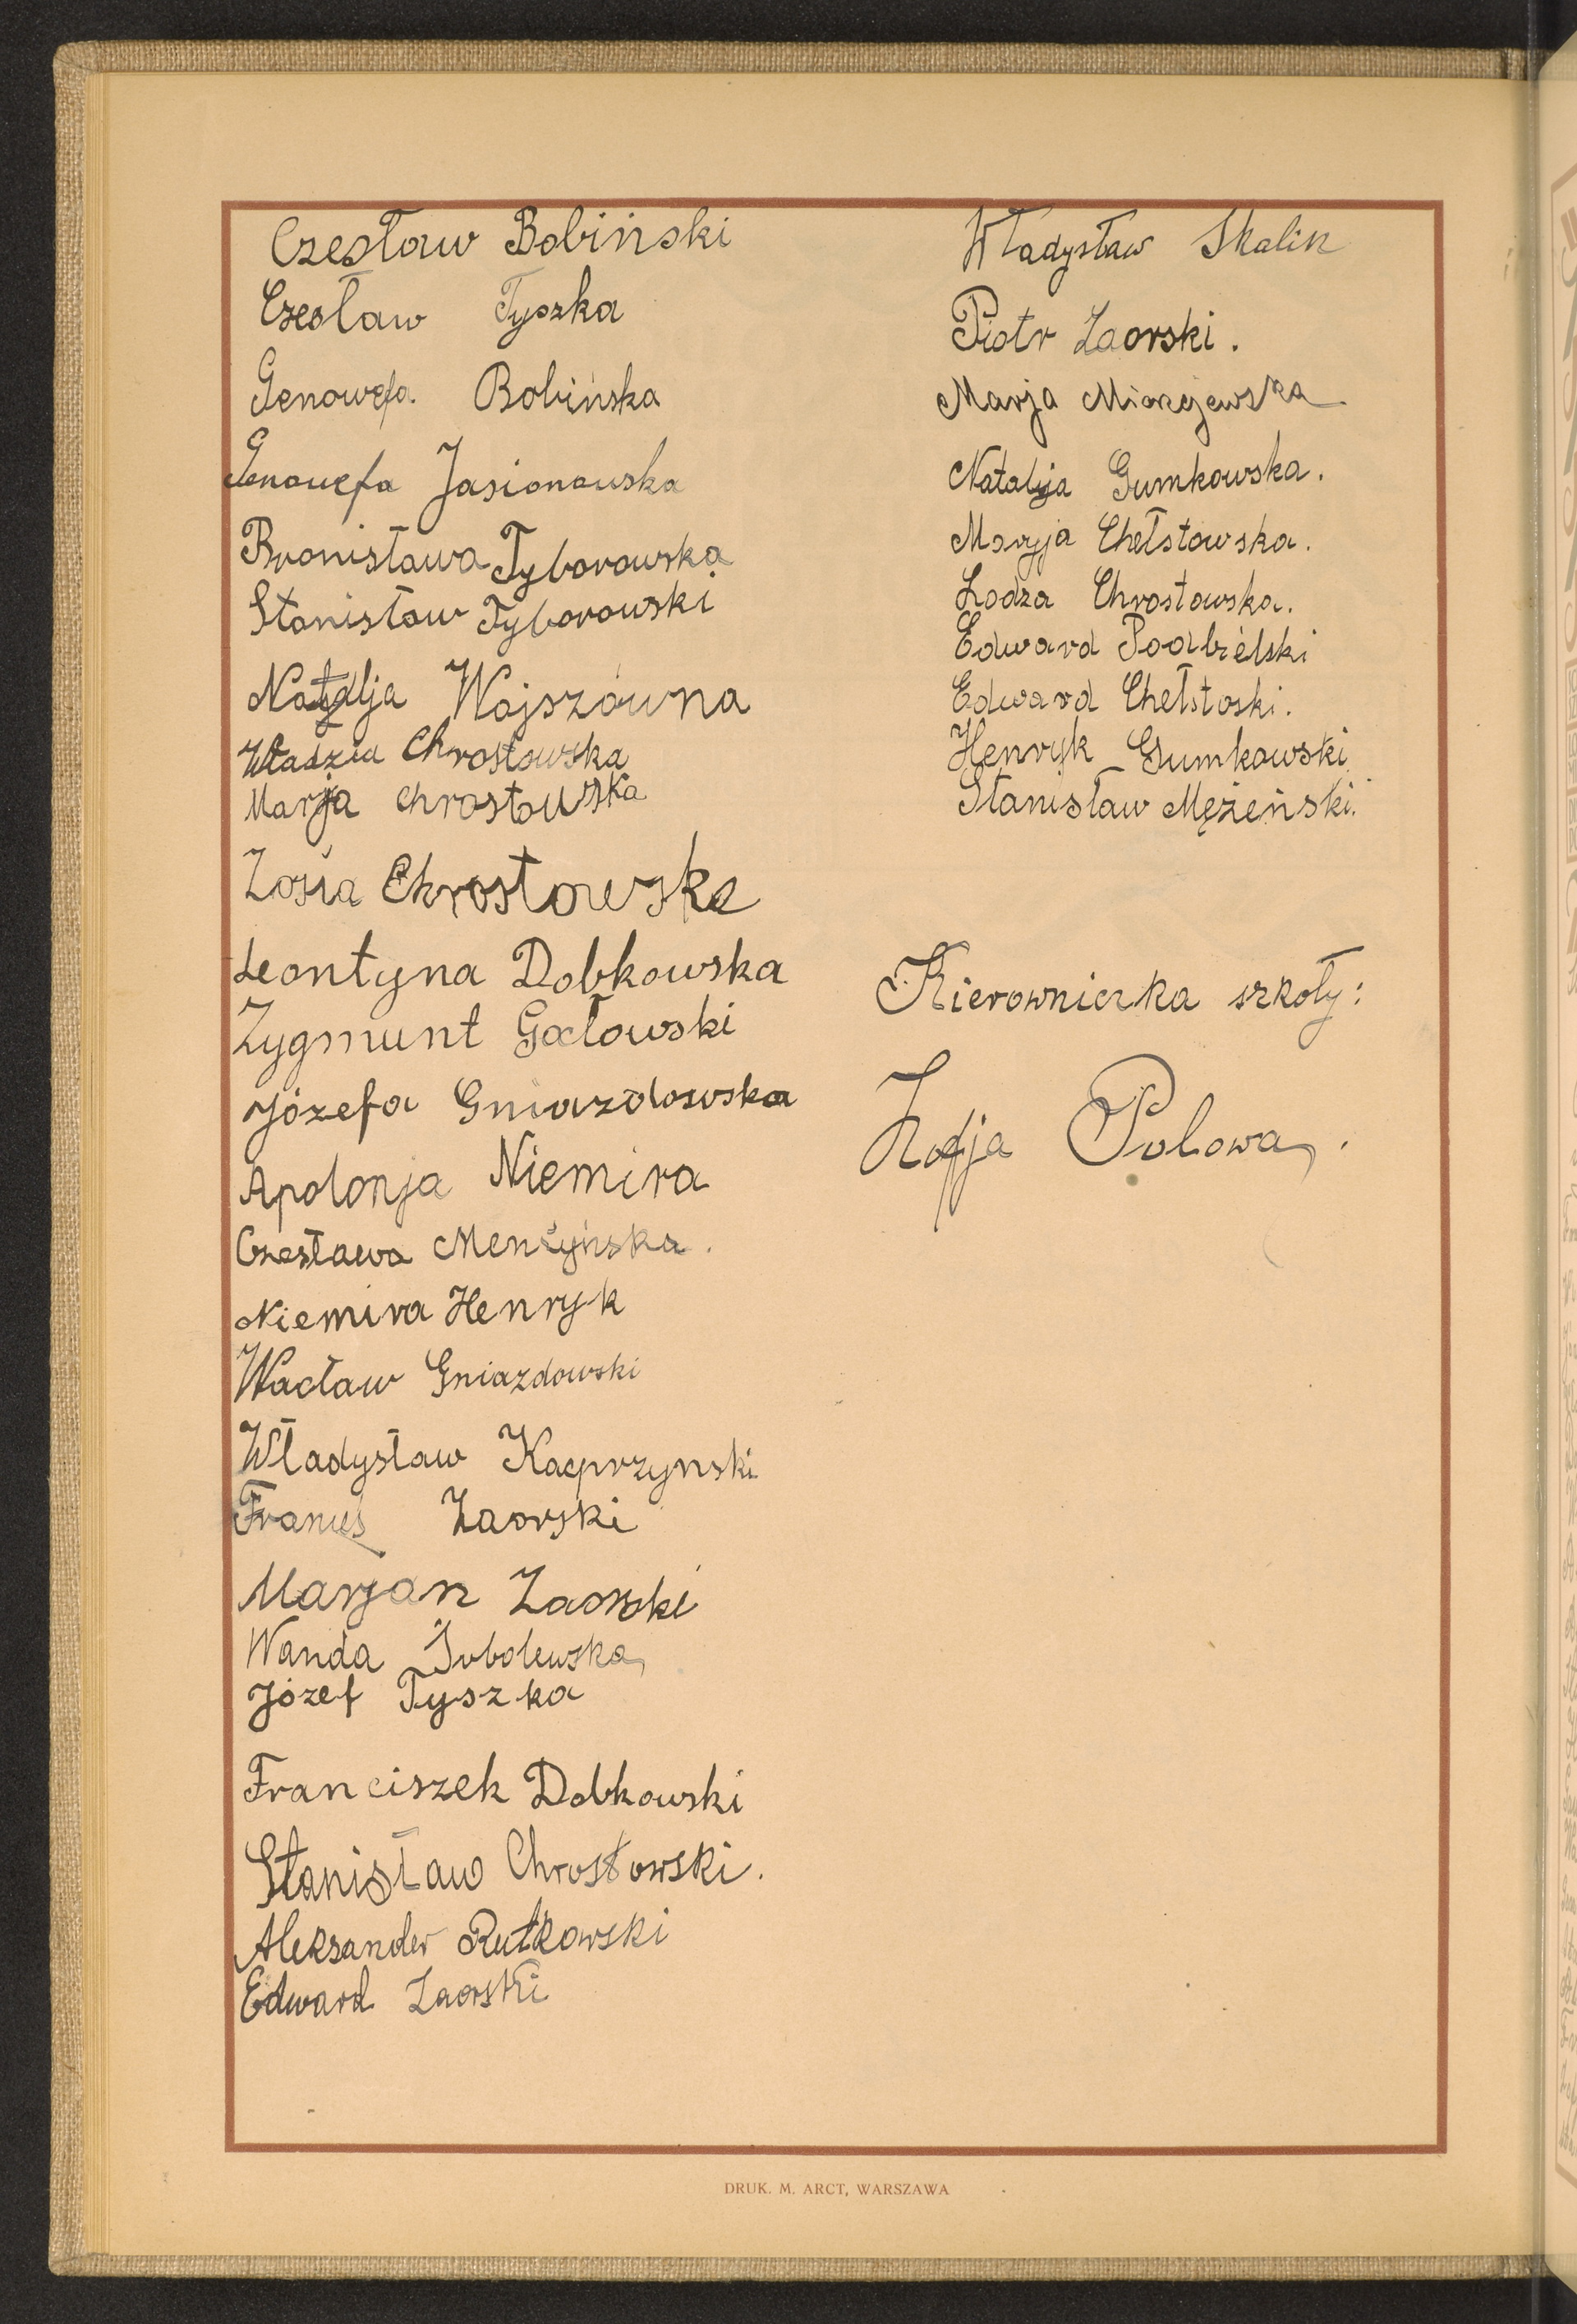 Czesław Bobiński
Czesław Tyszka
Genowefa Bobińska
Genowefa Jasionowska
Bronisława Tyborowska
Stanisław Tyborowski
Natalja Wojszówna
Władzia Chrostowska
Marja Chrostowska
Zosia Chrostowska
Leontyna Dobkowska
Zygmunt Gałowski
Józefa Gniazdowska
Apolonja Niemira
Czesława Menżyńska.
Niemira Henryk
Wacław Gniazdowski
Władysław Kacprzynski
Franuś Zaorski
Marjan Zaorski
Wanda Sobolewska
Józef Tyszka
Franciszek Dobkowski
Stanisław Chrostowski.
Aleksander Rutkowski
Edward Zaorski
Władysław Skalik
Piotr Zaorski.
Marja
Natalja Gumkowska.
Maryja Chełstowska.
Lodza Chrostowska.
Edward Podbielski
Edward Chełstoski.
Henryk Gumkowski
Stanisław Mężeński.
Kierowniczka szkoły:
Zofja Polowa.
DRUK. M. ARCT, WARSZAWA